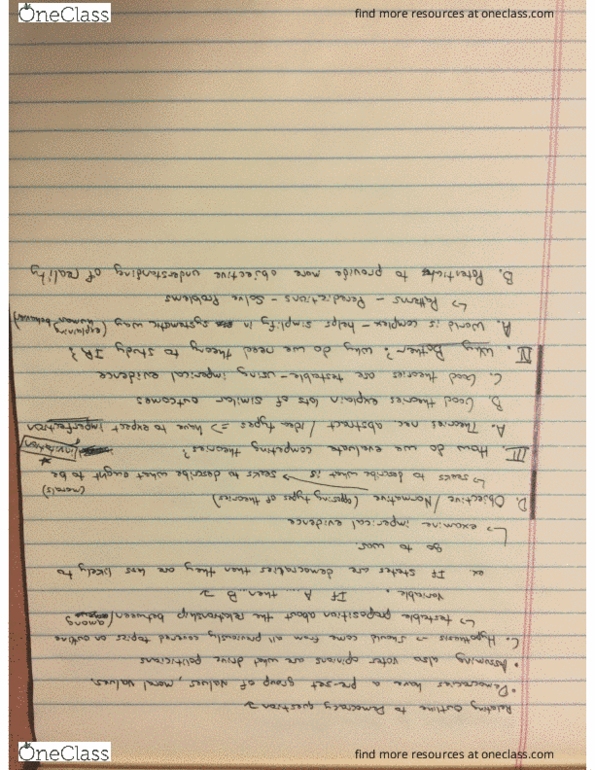 OneClass
find more resources at oneclass.com
Relating outline to Democracy question →
• Democracies have a pre-set group of values, moral values.
• Assuming also voter opinions are what drive politicians
C. Hypothesis → should come from all previously covered topics on outline
↳ testable proposition about the relationship between/among
Variable. If A... then B →
ex If states are democracies then they are less likely to
go to war.
↳ examine imperical evidence
D. Objective / Normative (opposing types of theories)
(morals)
↳ seeks to describe what is → seeks to describe what ought to be
III. How do we evaluate competing theories?
A. Theories are abstract / idea types => have to expect imperfection
B. Good theories explain lots of similar outcomes
C. Good theories are testable - using imperical evidence
IV. Why Bother? Why do we need theory to study IR?
A. World is complex - helps simplify in systematic way (explaining human behavior)
↳ Patterns - Peredictions - Solve Problems
B. to provide more objective understanding of reality
OneClass
find more resources at oneclass.com